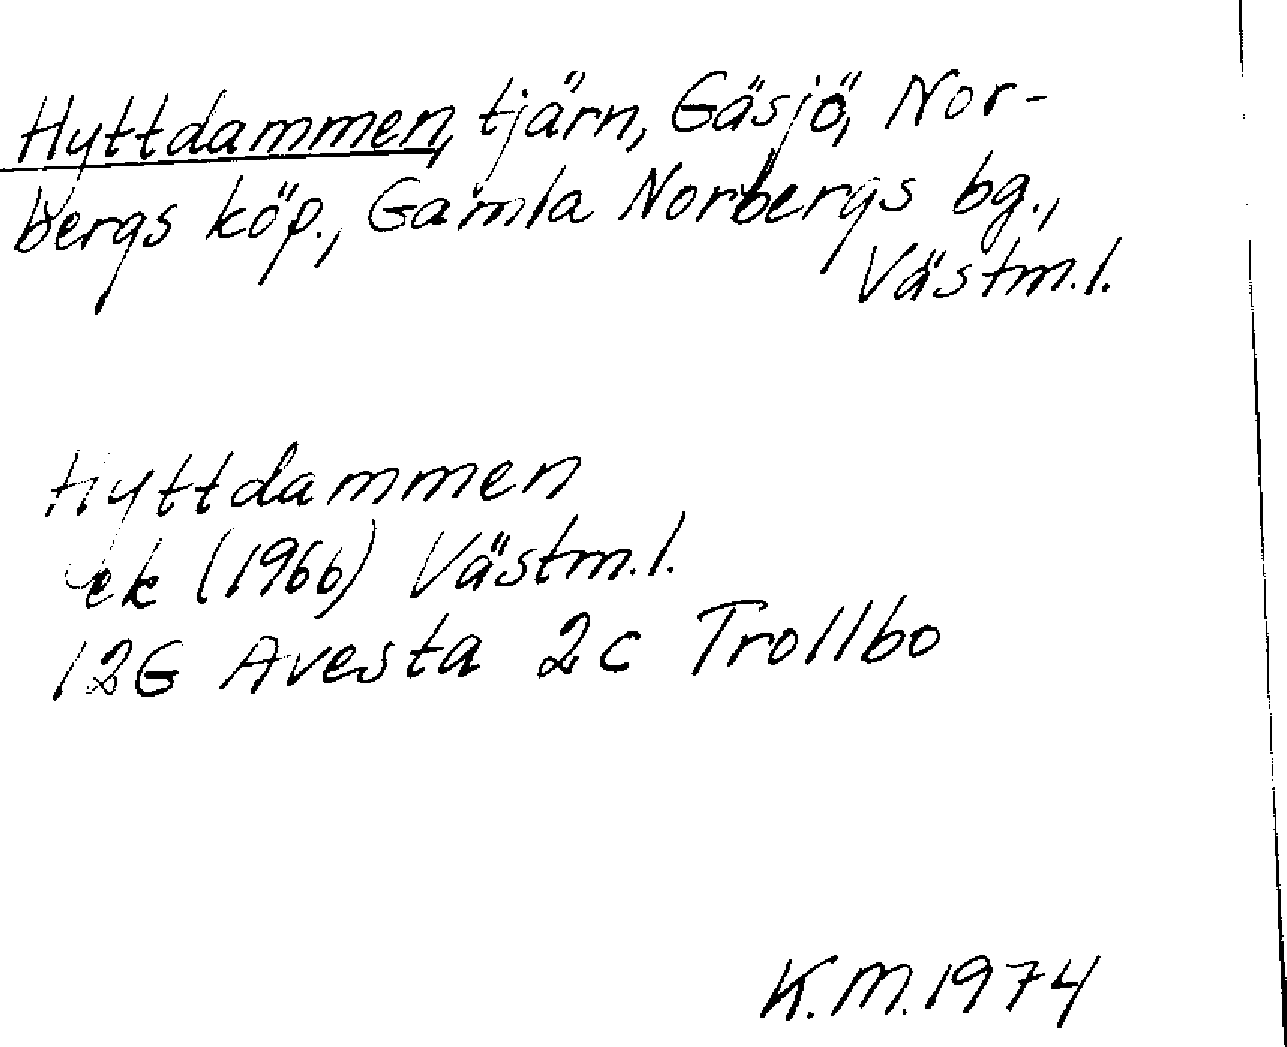 Hyttdammen, tjärn, Gäsjö, Nor-
bergs köp., Gamla Norbergs bg.,
Västm.l.
Hyttdammen
ek (1966) Västm.l.
12G Avesta 2c Trollbo
K.M.1974